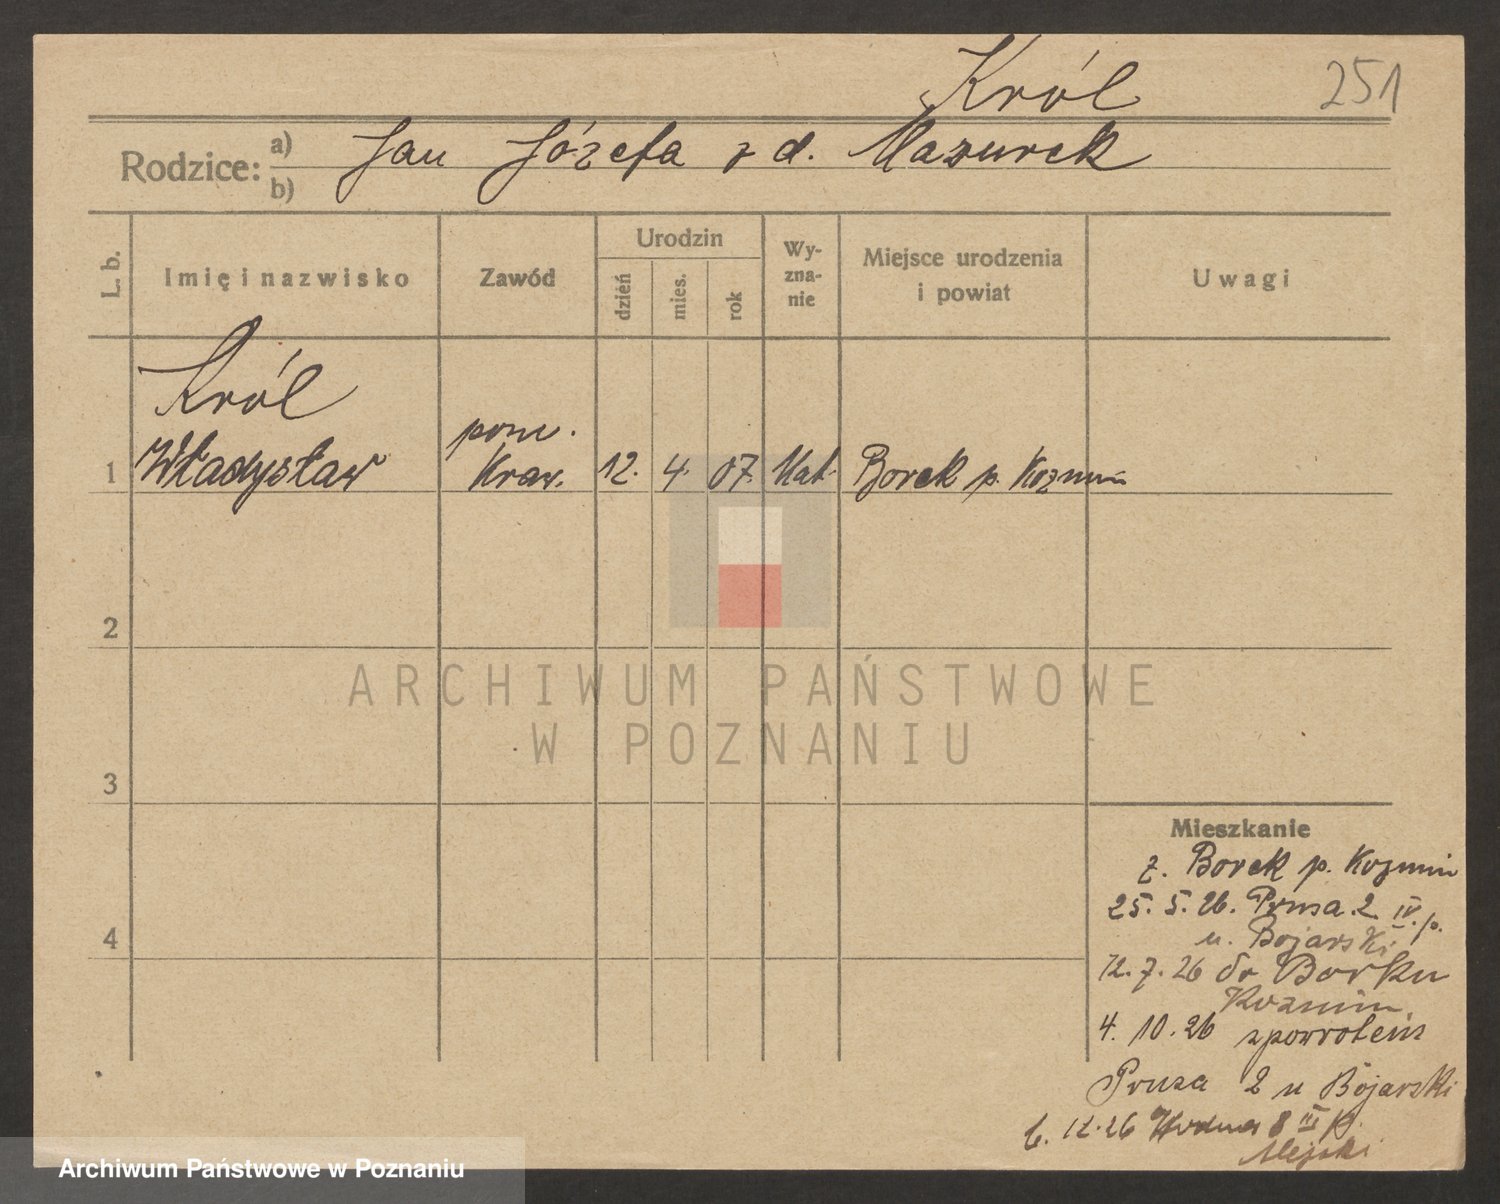 Król 251
Rodzice: a) b) Jan Józefa z d. Mazurek
L. b.
Imię i nazwisko
Zawód
Urodzin
dzień
mies.
rok
Wy-
zna-
nie
Miejsce urodzenia
i powiat
Uwagi
Król
pom.
1 Władysław Kraw. 12. 4. 07. Kat. Borek p. Kozmin
2
ARCHIWUM PAŃSTWOWE
W POZNANIU
3
Mieszkanie
z. Borek p. Kozmin
25. 5. 26. Prusa 2 IV. p.
4
u. Bojarski
12. 7. 26 do Borku
Kozmin
4. 10. 26 zpowrotem
Prusa 2 u Bojarski
6. 12. 26 8 III p.
Archiwum Państwowe w Poznaniu